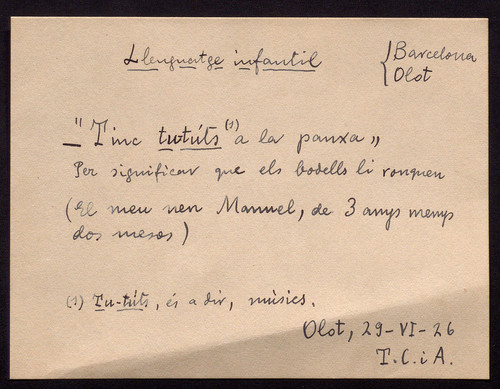 Llenguatge infantil
Barcelona
Olot
— "Tinc tutúts (1) a la panxa"
Per significar que els bodells li ronquen
(El meu nen Manuel, de 3 anys menys
dos mesos)
(1) Tu-túts, és a dir, músics.
Olot, 29-VI-26
T. C. i A.